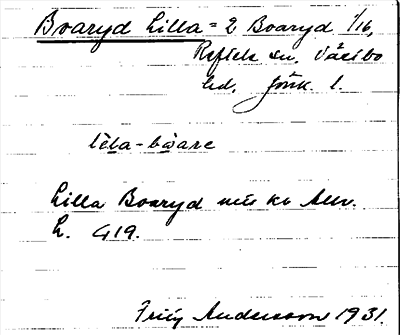 Boaryd Lilla = 2 Boaryd 1/16,
Reftele sn, Västbo
hd, Jönk. l.
lèla-bòare
Lilla Boaryd
h. 419.
Andersson 1931.